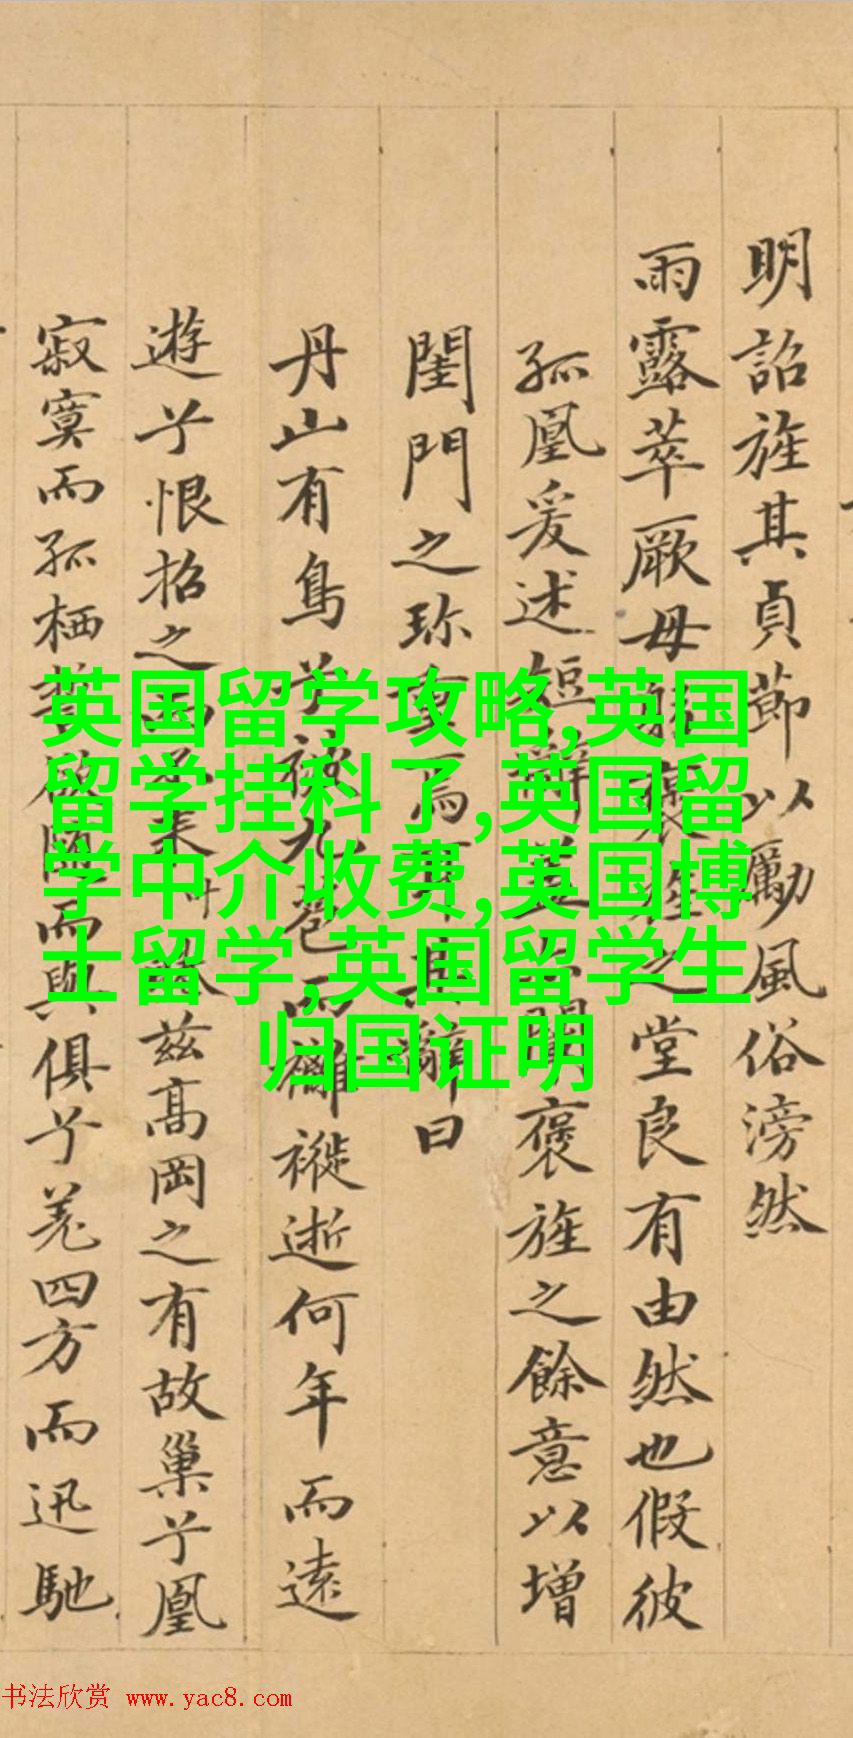 明詔旌其貞節以勵風俗滂然
雨露萃厥母褒旌之堂良有由然也假彼
孤凰爰述短辭褒旌之餘意以增
閨門之珎重焉耳其辭曰
丹山有鳥兮被九苞而襹褷逝何年而遠
遊兮恨招之而不来兹髙岡之有故巢兮凰
寂寞而孤栖欲随而與俱兮羗四方而迅馳
英国留学攻略,英国
留学挂科了,英国留
学中介收费,英国博
士留学,英国留学生
归国证明
书法欣赏 www.yac8.com